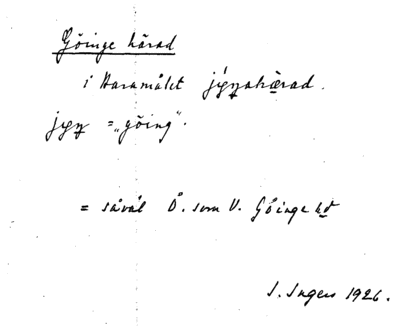 Göinge härad
i Haramålet jyŋahærad.
jyŋ = „göing“.
= såväl Ö. som V. Göinge hd
I. Ingers 1926.